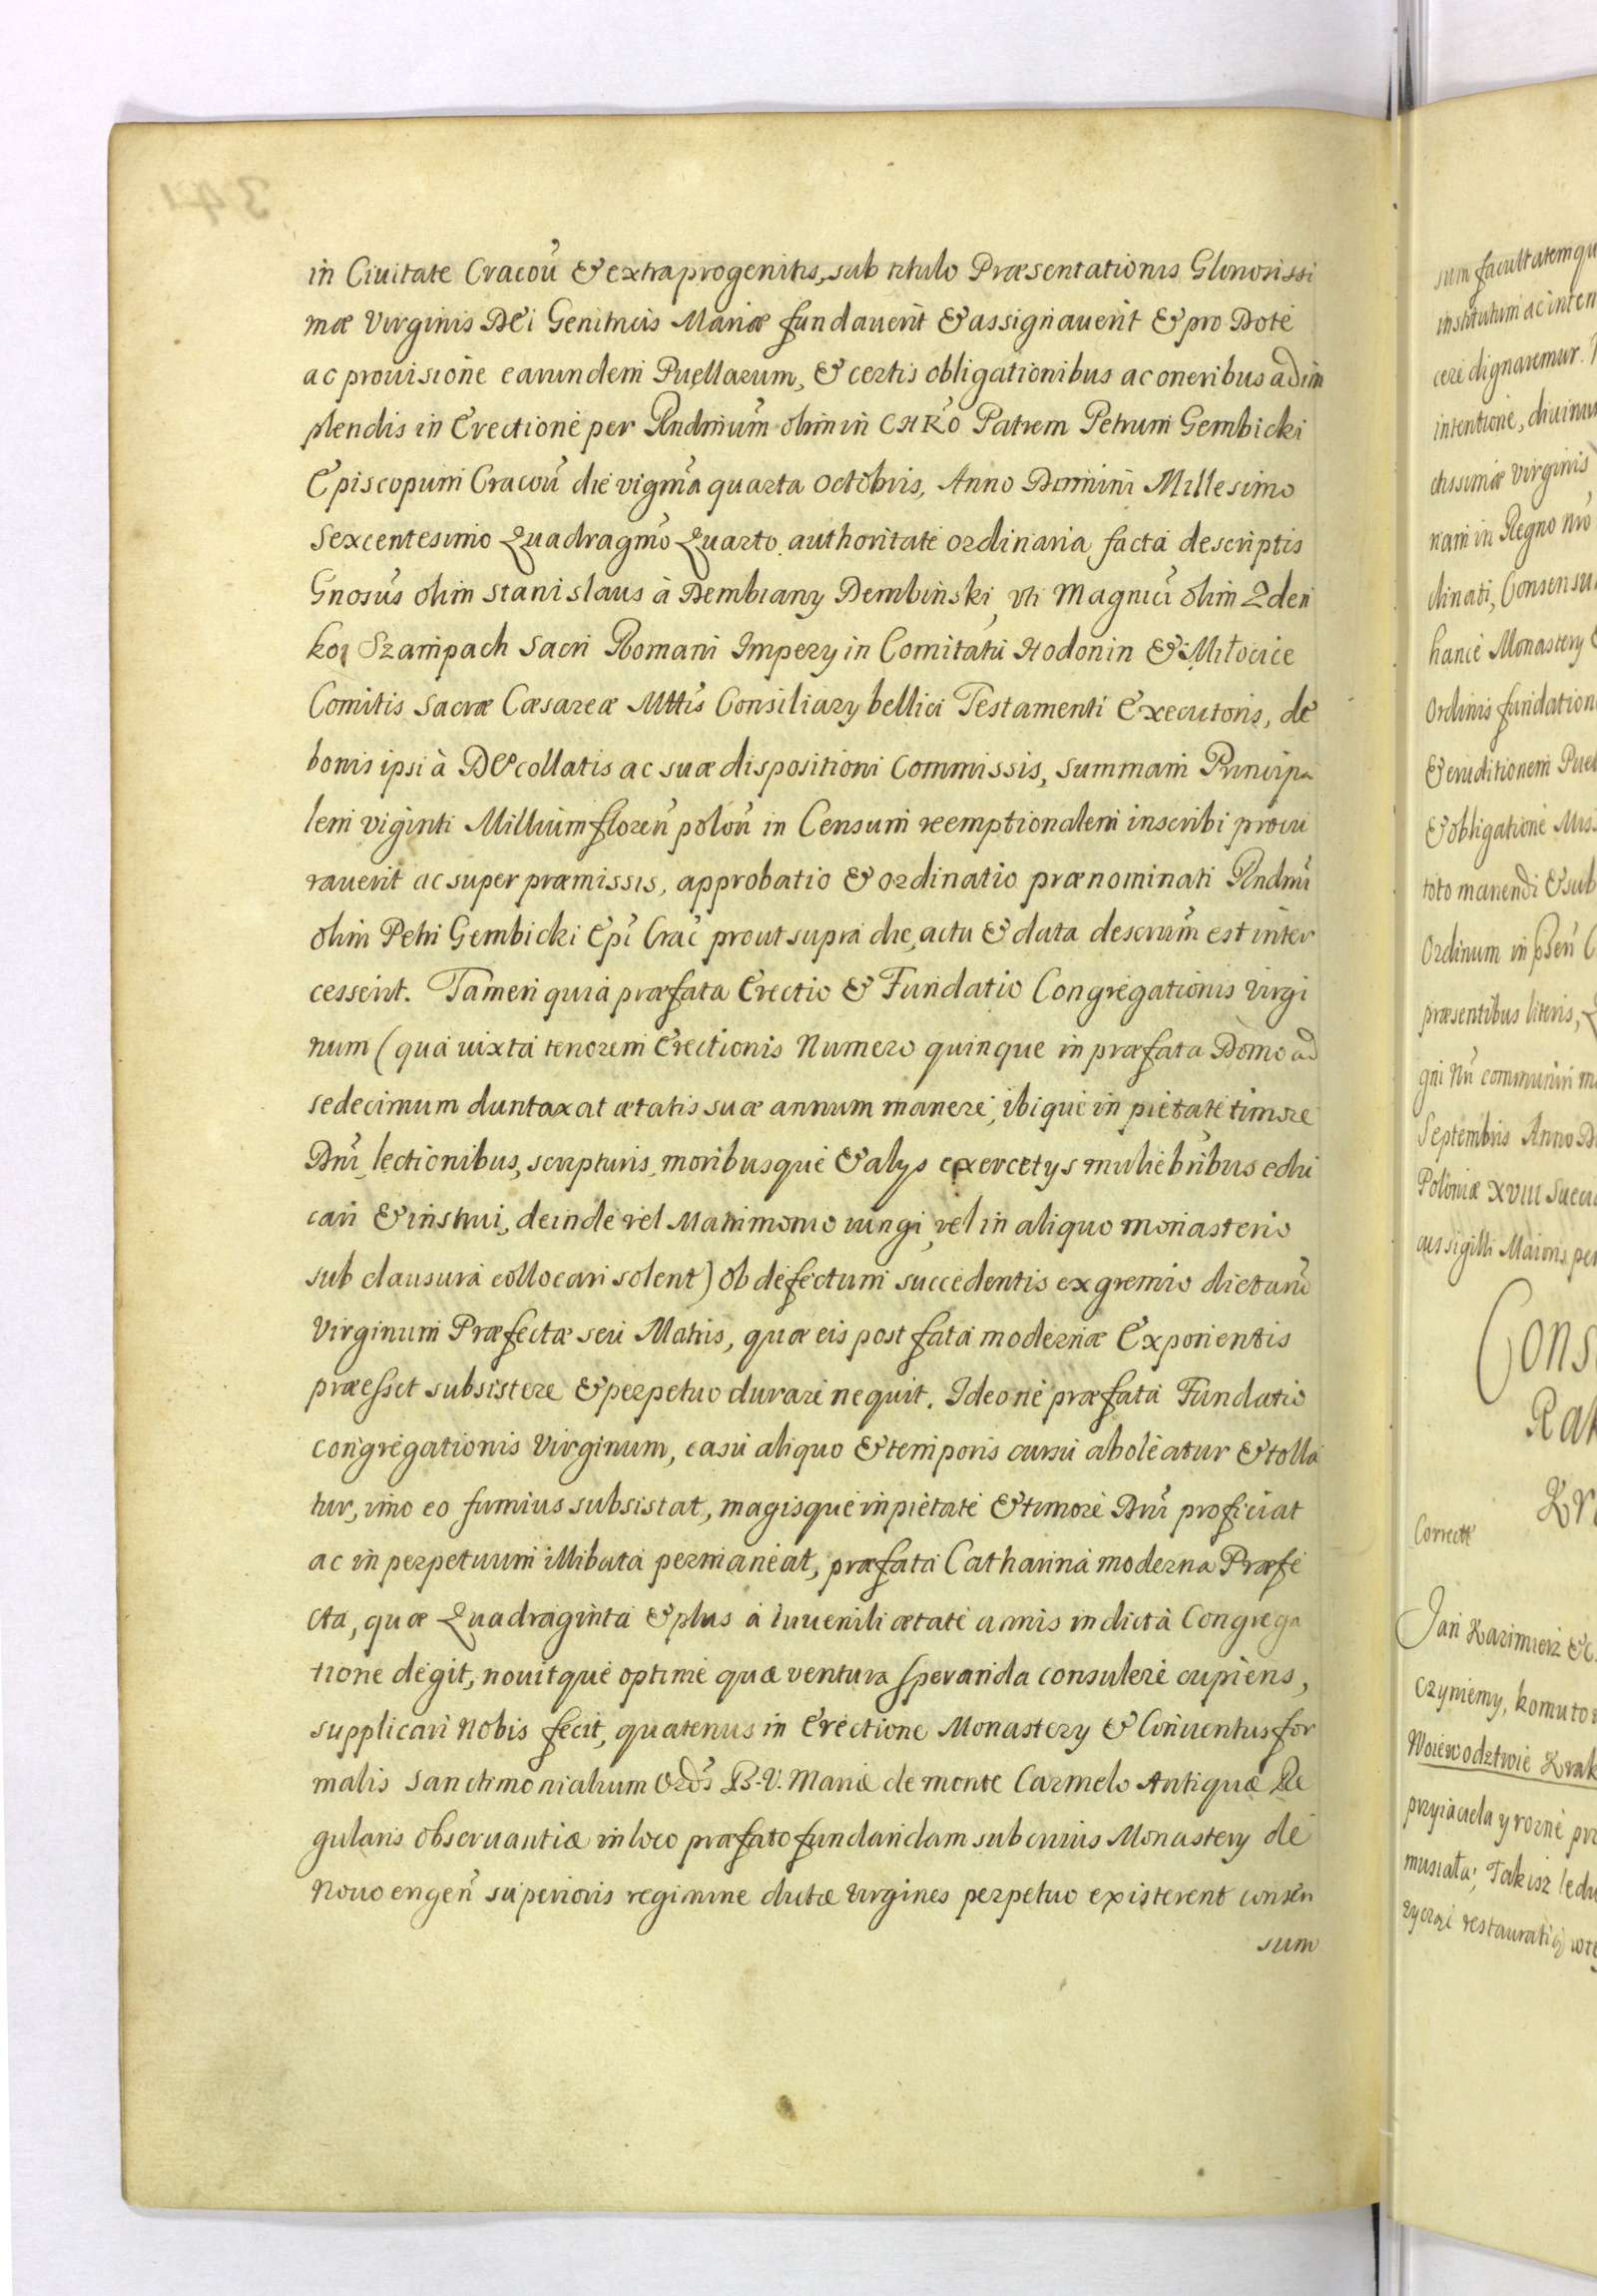 in Ciuitate Cracou̅ & extra progenitis, sub titulo Præsentationis Gloriosissi
mæ Virginis DEi Genitricis Mariæ fundauerit & assignauerit & pro Dote
ac prouisione earundem Puellarum, & certis obligationibus ac oneribus adim
plendis in Erectione per Rndmum olim in CHRO Patrem Petrum Gembicki
Episcopum Cracou̅ die vigma quarta Octobris, Anno Domini Millesimo
Sexcentesimo Quadragmo Quarto authoritate ordinaria facta descriptis
Gnosus olim Stanislaus à Dembiany Dembinski, vti Magnici olim Zden
koi Szampach Sacri Romani Impery in Comitatu Hodonin & Miłocice
Comitis Sacræ Cæsareæ Mttis Consiliary bellici Testamenti Executoris, de
bonis ipsi à DEo collatis ac suæ dispositioni Commissis, summam Principa
lem viginti Millium floren̅ polon̅ in Censum reemptionalem inscribi procu
rauerit ac super præmissis, approbatio & ordinatio prænominati Rndmi
olim Petri Gembicki Epi Crac prout supra die, actu & data descrum est inter
cesserit. Tamen quia præfata Erectio & Fundatio Congregationis Virgi
num (qua iuxta tenorem Erectionis Numero quinque in præfata Domo ad
sedecimum duntaxat ætatis suæ annum manere, ibique in pietate timore
Dni, lectionibus, scripturis, moribusque & alys exercitys muliebribus edu
cari & instrui, deinde vel Matrimonio iungi, vel in aliquo monasterio
sub clausura collocari solent) ob defectum succedentis ex gremio dictaru̅
Virginum Præfectæ seu Matris, quæ eis post fata modernæ Exponentis
præesset subsistere & perpetuo durare nequit. Ideo ne præfata Fundatio
congregationis Virginum, casu aliquo & temporis cursu aboleatur & tolla
tur, imo eo firmius subsistat, magisque in pietate & timore Dni proficiat
ac in perpetuum illibata permaneat, præfata Catharina moderna Præfe
cta, quæ Quadraginta & plus à Iuuenili ætate annis in dicta Congrega
tione degit, nouitque optime quæ ventura speranda consulere cupiens,
supplicari Nobis fecit, quatenus in Erectione Monastery & Conuentus for
malis Sanctimonialium Ords B. V. Mariæ de monte Carmelo Antiquæ Re
gularis Obseruantiæ in loco præfato fundandam sub cuius Monastery de
Nouo engen̅ superioris regimine dictæ Virgines perpetuo existerent consen
sum
sum facultatemqu
institutum ac inten
cere dignaremur.
intentione, diuinu
ctissimæ Virginis
nam in Regno nro
dinati, Consensu
hance Monastery
Ordinis fundation
& eruditionem Puel
& obligatione Mis
toto manendi & sub
Ordinum in psen̅
præsentibus literis,
gni Nri communiri m
Septembris Anno D
Poloniæ XVIII Sueci
cus sigilli Maioris per
Cons
Rak
Kr
Correctt
Jan Kazimierz &c
Czyniemy, komu to
Woiewodztwie Krak
przyiaciela y rozne prz
musiała; Takisz ledw